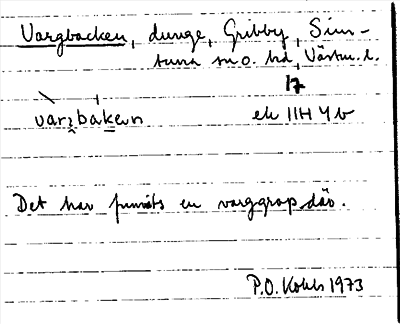 Vargbacken, dunge, Gribby, Sim-
tuna sn o. hd, Västm. l.
17
ek 11H 4b
Det har funnits en varggrop där.
P.O. 1973